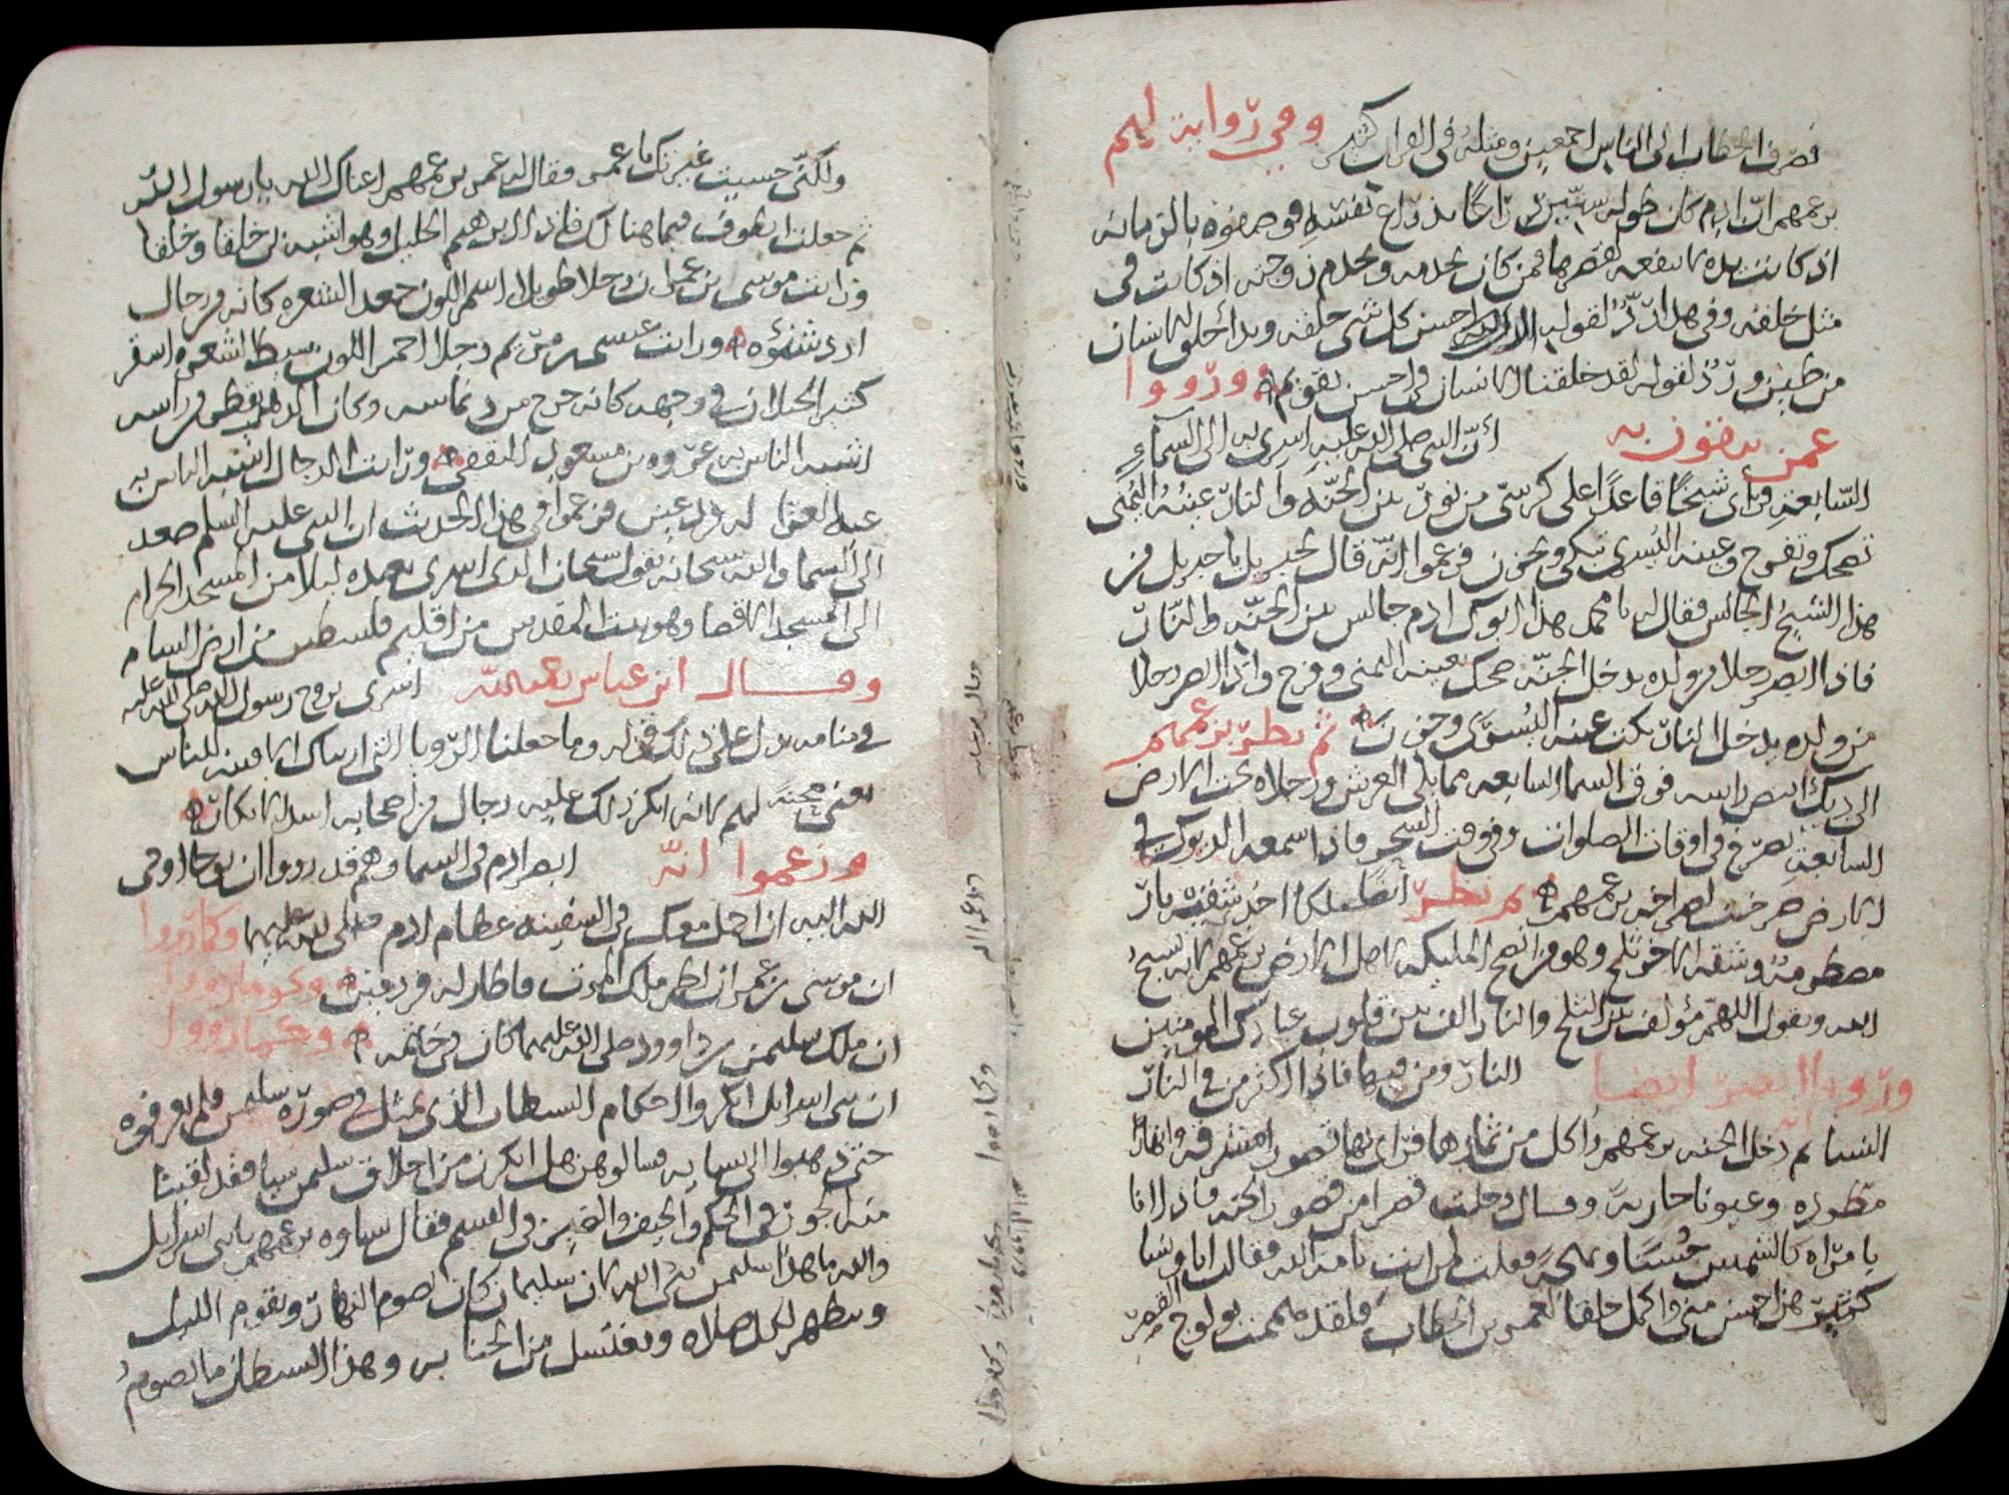 فصرف الخطاب الى الناس اجمعين ومثله في القران كثير وفي رواية لهم
بزعمهم ان ادم كان طوله ستين ذراعا بذراع نفسه ووصفوه بالزمانه
اذ كانت يده لا تنفعه لقصرها فمن كان يخدمه ويخدم زوجته اذ كانت في
مثل خلقته وفي هذا رد لقوله الذي احسن كل شي خلقه وبدا خلق الانسان
من طين ورد لقوله لقد خلقنا الانسان في احسن تقويم ورووا
عمن يثقون به ان النبي صلى الله عليه اسرى به الى السماء
السابعة فراى شيخا قاعدا على كرسي من نور بين الجنة والنار عينه اليمنى
تضحك وتفرح وعينه اليسرى تبكي وتحزن فزعموا انه قال لجبريل يا جبريل من
هذا الشيخ الجالس فقال له يا محمد هذا ابوك ادم جالس بين الجنة والنار
فاذا ابصر رجلا من ولده يدخل الجنة ضحك بعينه اليمنى وفرح واذا ابصر رجلا
من ولده يدخل النار بكت عينه اليسرى وحزن ثم نظر بزعمهم
الى ديك ابيض راسه فوق السما السابعه مما يلي العرش ورجلاه تحت الارض
السابعة يصرخ في اوقات الصلوات وفي وقت السحر فاذا سمعه الديوك في
الارض صرخت لصراخه بزعمهم ثم نظر ايضا ملكا احد شقيه نار
مضطرمة وشقه الاخر ثلج وهو من انصح المليكه لاهل الارض بزعمهم لانه يسبح
الله ويقول اللهم مؤلف بين الثلج والنار الف بين قلوب عبادك المومنين
ورووا انه ابصر ايضا النار ومن فيها فاذا اكثر من في النار
النسا ثم دخل الجنه بزعمهم واكل من ثمارها فراى بها قصورا مشرفه وانهارا
مطرده وعيونا جارية وقال دخلت قصرا من قصور الجنه فاذا انا
بامراه كالشمس حسنا وبهجة فقلت لمن انت يا امة الله فقالت انا وشيا
كثير هذا احسن مني واكمل خلقا لعمر بن الخطاب فلقد هممت بولوج القصر
ولكني حسبت غيرتك يا عمر فقال له عمر بن عمهم اعناك الله يا رسول الله
ثم جعلت اطوف فيما هنالك فاذا ابرهيم الخليل وهو اشبه بي خلقا وخلقا
ورايت موسى بن عمران رجلا طويلا اسمر اللون جعد الشعره كانه من رجال
ازد شنوه ورايت عيسى بن مريم رجلا احمر اللون سبط الشعره اسقر
كثير الخيلان في وجهه كانه خرج من ديماسه وكان الدهن يقطر من راسه
اشبه الناس به عروه بن مسعود الثقفي ورايت الدجال اشبه الناس به
عبد العزى له فزعموا في هذا الحديث ان النبي عليه السلم صعد
الى السما والله سبحانه يقول سبحان الذي اسرى بعبده ليلا من المسجد الحرام
الى المسجد الاقصا وهو بيت المقدس من اقليم فلسطين من ارض السام
وقال ابن عباس رحمه الله اسرى بروح رسول الله صلى الله عليه
في منامه يدل على ذلك قوله وما جعلنا الرويا التي اريناك الا فتنه للناس
يعني محنة لهم لانه انكر ذلك عليه رجال من اصحابه اشد الانكار
وزعموا انه ابصر ادم في السما وهم قد رووا ان نوحا اوحى
الله اليه ان احمل معك في السفينه عظام ادم صلى الله عليهما وكما رووا
ان موسى بن عمران لطم ملك الموت فاطار له فرد عين وكما رووا
ان ملك سليمن بن داوود صلى الله عليهما كان في خاتمه
ان بني اسرايل انكروا احكام السطان الذي تمثل في صورة سليمن فلم يعرفوه
حتى ذهبوا الى نسايه فسالوهن هل انكرن من اخلاق سليمن سيا فقد لقينا
منه الجور في الحكم والحيف والضيز في القسم فقال نساوه بزعمهم يا بني اسرايل
والله ما هذا سليمن نبي الله لان سليمان كان يصوم النهار ويقوم الليل
ويتطهر لكل صلاه ويغتسل من الجنابه وهذا السطان ما يصوم